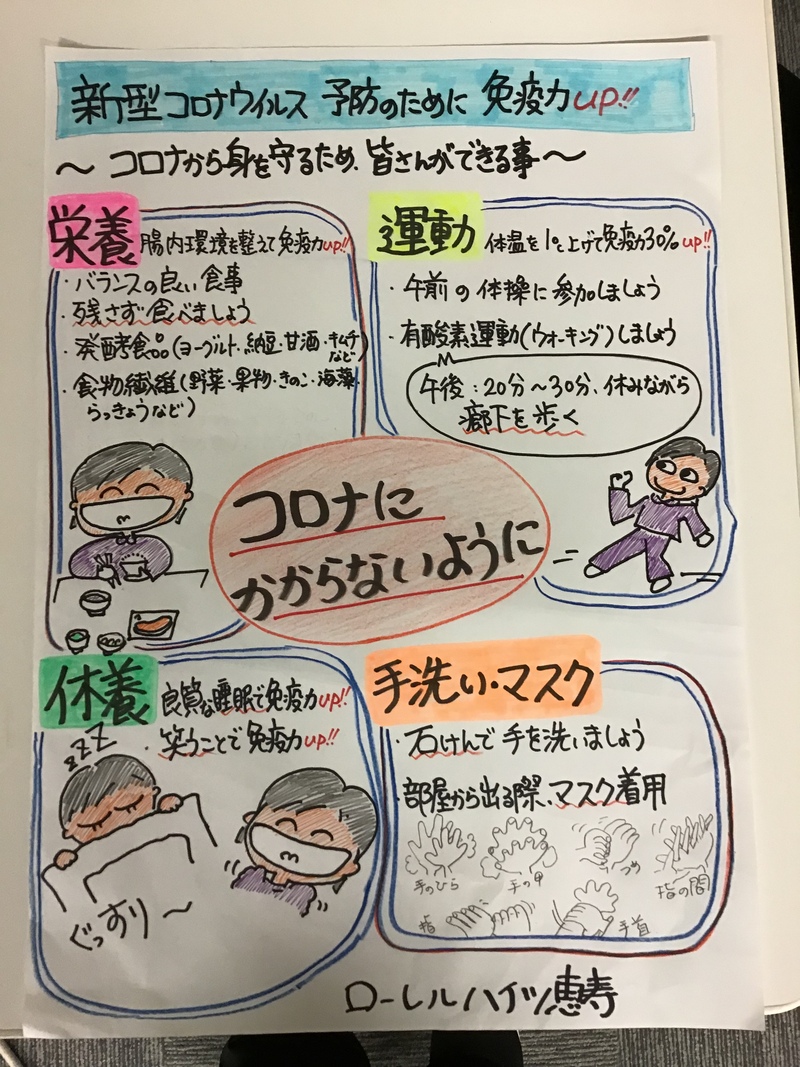 新型コロナウイルス 予防のために 免疫力up!!
～ コロナから身を守るため、皆さんができる事～
栄養 腸内環境を整えて免疫力up!!
・バランスの良い食事
・残さず食べましょう
・発酵食品(ヨーグルト・納豆・甘酒・キムチなど)
・食物繊維(野菜・果物・きのこ・海藻・
らっきょうなど)
運動 体温を1℃上げて免疫力30%up!!
・午前の体操に参加しましょう
・有酸素運動(ウォーキング)しましょう
午後:20分～30分、休みながら
廊下を歩く
コロナに
かからないように
休養 良質な睡眠で免疫力up!!
・笑うことで免疫力up!!
zzz
ぐっすり～
手洗い・マスク
・石けんで手を洗いましょう
・部屋から出る際、マスク着用
手のひら 手の甲 つめ 指の間
指 手首
ローレルハイツ恵寿